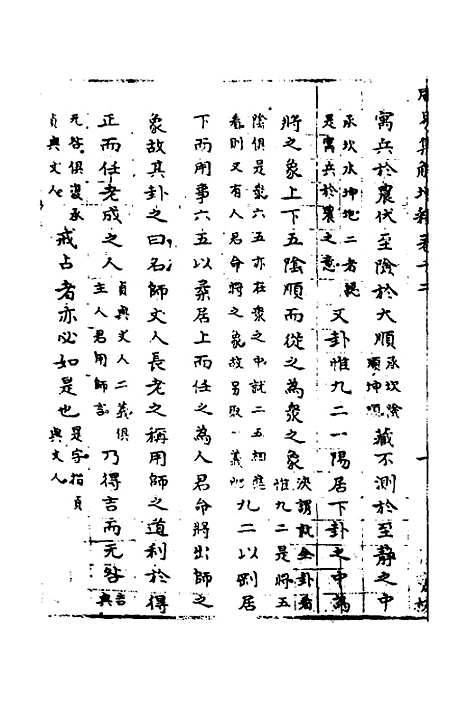 寓兵於農伏至險於大順承坎險順坤順藏不測於至靜之中
承坎水坤地二者是寓兵於農之意又卦惟九二一陽居下卦之中為
將之象上下五陰順而從之為衆之象決謂就全卦看惟九二是將五
陰俱是衆六五亦在衆之中就二五相應看則又有人君命將之象故另取一義九二以剛居
下而用事六五以柔居上而任之為人君命將出師之
象故其卦之曰名師丈人長老之稱用師之道利於得
正而任老成之人貞與丈人二義俱主人君用師言乃得吉而无咎吉與
无咎俱從承貞與丈人戒占者亦必如是也是字指貞與丈人